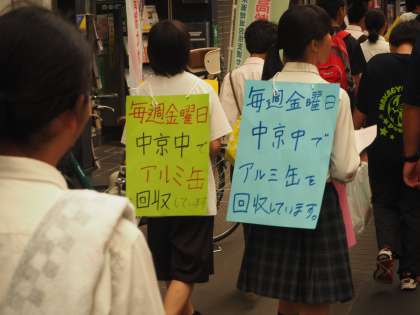 毎週金曜日
中京中で
アルミ缶
回収しています
毎週金曜日
中京中で
アルミ缶を
回収しています。